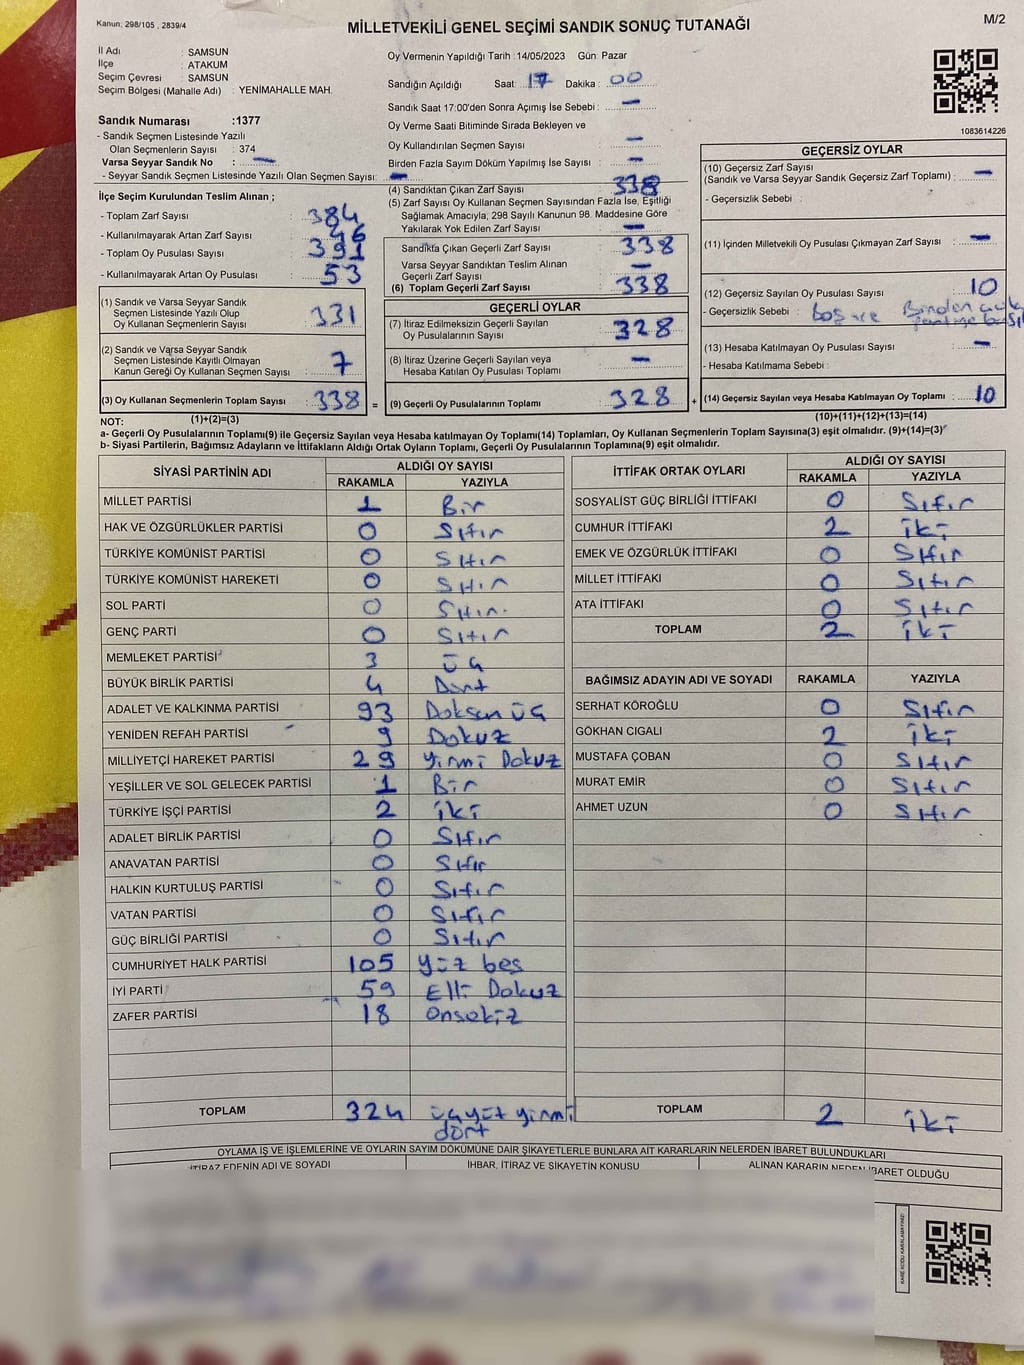 Kanun; 298/105 , 2839/4
MİLLETVEKİLİ GENEL SEÇİMİ SANDIK SONUÇ TUTANAĞI
M/2
İl Adı : SAMSUN
İlçe : ATAKUM
Seçim Çevresi : SAMSUN
Seçim Bölgesi (Mahalle Adı) : YENİMAHALLE MAH.
Sandık Numarası :1377
- Sandık Seçmen Listesinde Yazılı
Olan Seçmenlerin Sayısı : 374
Varsa Seyyar Sandık No : —
- Seyyar Sandık Seçmen Listesinde Yazılı Olan Seçmen Sayısı: —
Oy Vermenin Yapıldığı Tarih :14/05/2023 Gün: Pazar
Sandığın Açıldığı Saat: 17 Dakika : 00
Sandık Saat 17:00'den Sonra Açımış İse Sebebi : —
Oy Verme Saati Bitiminde Sırada Bekleyen ve
Oy Kullandırılan Seçmen Sayısı : —
Birden Fazla Sayım Döküm Yapılmış İse Sayısı : —
1083614226
İlçe Seçim Kurulundan Teslim Alınan ;
- Toplam Zarf Sayısı : 384
- Kullanılmayarak Artan Zarf Sayısı : 46
- Toplam Oy Pusulası Sayısı : 391
- Kullanılmayarak Artan Oy Pusulası : 53
(1) Sandık ve Varsa Seyyar Sandık
Seçmen Listesinde Yazılı Olup
Oy Kullanan Seçmenlerin Sayısı : 331
(2) Sandık ve Varsa Seyyar Sandık
Seçmen Listesinde Kayıtlı Olmayan
Kanun Gereği Oy Kullanan Seçmen Sayısı : 7
(3) Oy Kullanan Seçmenlerin Toplam Sayısı : 338 =
(4) Sandıktan Çıkan Zarf Sayısı : 338
(5) Zarf Sayısı Oy Kullanan Seçmen Sayısından Fazla İse, Eşitliği
Sağlamak Amacıyla; 298 Sayılı Kanunun 98. Maddesine Göre
Yakılarak Yok Edilen Zarf Sayısı : —
Sandıkta Çıkan Geçerli Zarf Sayısı : 338
Varsa Seyyar Sandıktan Teslim Alınan
Geçerli Zarf Sayısı : —
(6) Toplam Geçerli Zarf Sayısı : 338
GEÇERLİ OYLAR
(7) İtiraz Edilmeksizin Geçerli Sayılan
Oy Pusulalarının Sayısı : 328
(8) İtiraz Üzerine Geçerli Sayılan veya
Hesaba Katılan Oy Pusulası Toplamı : —
(9) Geçerli Oy Pusulalarının Toplamı : 328 +
GEÇERSİZ OYLAR
(10) Geçersiz Zarf Sayısı
(Sandık ve Varsa Seyyar Sandık Geçersiz Zarf Toplamı) : —
- Geçersizlik Sebebi :
(11) İçinden Milletvekili Oy Pusulası Çıkmayan Zarf Sayısı : —
(12) Geçersiz Sayılan Oy Pusulası Sayısı : 10
- Geçersizlik Sebebi : Boş ve Birden çok
(13) Hesaba Katılmayan Oy Pusulası Sayısı : —
- Hesaba Katılmama Sebebi :
(14) Geçersiz Sayılan veya Hesaba Katılmayan Oy Toplamı : 10
NOT: (1)+(2)=(3)
(10)+(11)+(12)+(13)=(14)
a- Geçerli Oy Pusulalarının Toplamı(9) ile Geçersiz Sayılan veya Hesaba katılmayan Oy Toplamı(14) Toplamları, Oy Kullanan Seçmenlerin Toplam Sayısına(3) eşit olmalıdır. (9)+(14)=(3)
b- Siyasi Partilerin, Bağımsız Adayların ve İttifakların Aldığı Ortak Oyların Toplamı, Geçerli Oy Pusulalarının Toplamına(9) eşit olmalıdır.
SİYASİ PARTİNİN ADI ALDIĞI OY SAYISI
RAKAMLA YAZIYLA
MİLLET PARTİSİ 1 Bir
HAK VE ÖZGÜRLÜKLER PARTİSİ 0 Sıfır
TÜRKİYE KOMÜNİST PARTİSİ 0 Sıfır
TÜRKİYE KOMÜNİST HAREKETİ 0 Sıfır
SOL PARTİ 0 Sıfır
GENÇ PARTİ 0 Sıfır
MEMLEKET PARTİSİ 3 üç
BÜYÜK BİRLİK PARTİSİ 4 Dört
ADALET VE KALKINMA PARTİSİ 93 Doksan üç
YENİDEN REFAH PARTİSİ 9 Dokuz
MİLLİYETÇİ HAREKET PARTİSİ 29 yirmi Dokuz
YEŞİLLER VE SOL GELECEK PARTİSİ 1 Bir
TÜRKİYE İŞÇİ PARTİSİ 2 iki
ADALET BİRLİK PARTİSİ 0 Sıfır
ANAVATAN PARTİSİ 0 Sıfır
HALKIN KURTULUŞ PARTİSİ 0 Sıfır
VATAN PARTİSİ 0 Sıfır
GÜÇ BİRLİĞİ PARTİSİ 0 Sıfır
CUMHURİYET HALK PARTİSİ 105 yüz beş
İYİ PARTİ 59 Elli Dokuz
ZAFER PARTİSİ 18 onsekiz
TOPLAM 324 üçyüz yirmi
dört
İTTİFAK ORTAK OYLARI ALDIĞI OY SAYISI
RAKAMLA YAZIYLA
SOSYALİST GÜÇ BİRLİĞİ İTTİFAKI 0 Sıfır
CUMHUR İTTİFAKI 2 iki
EMEK VE ÖZGÜRLÜK İTTİFAKI 0 Sıfır
MİLLET İTTİFAKI 0 Sıfır
ATA İTTİFAKI 0 Sıfır
TOPLAM 2 iki
BAĞIMSIZ ADAYIN ADI VE SOYADI RAKAMLA YAZIYLA
SERHAT KÖROĞLU 0 Sıfır
GÖKHAN CIGALI 2 iki
MUSTAFA ÇOBAN 0 Sıfır
MURAT EMİR 0 Sıfır
AHMET UZUN 0 Sıfır
TOPLAM 2 iki
OYLAMA İŞ VE İŞLEMLERİNE VE OYLARIN SAYIM DÖKÜMÜNE DAİR ŞİKAYETLERLE BUNLARA AİT KARARLARIN NELERDEN İBARET BULUNDUKLARI
İTİRAZ EDENİN ADI VE SOYADI İHBAR, İTİRAZ VE ŞİKAYETİN KONUSU ALINAN KARARIN NEDEN İBARET OLDUĞU